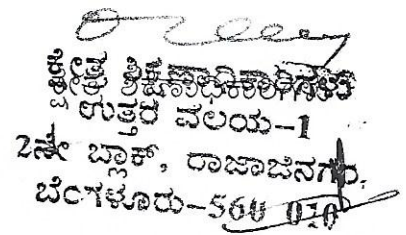 ಕ್ಷೇತ್ರ ಶಿಕ್ಷಣಾಧಿಕಾರಿಗಳು
ಉತ್ತರ ವಲಯ-1
2ನೇ ಬ್ಲಾಕ್, ರಾಜಾಜಿನಗರ,
ಬೆಂಗಳೂರು-560 010